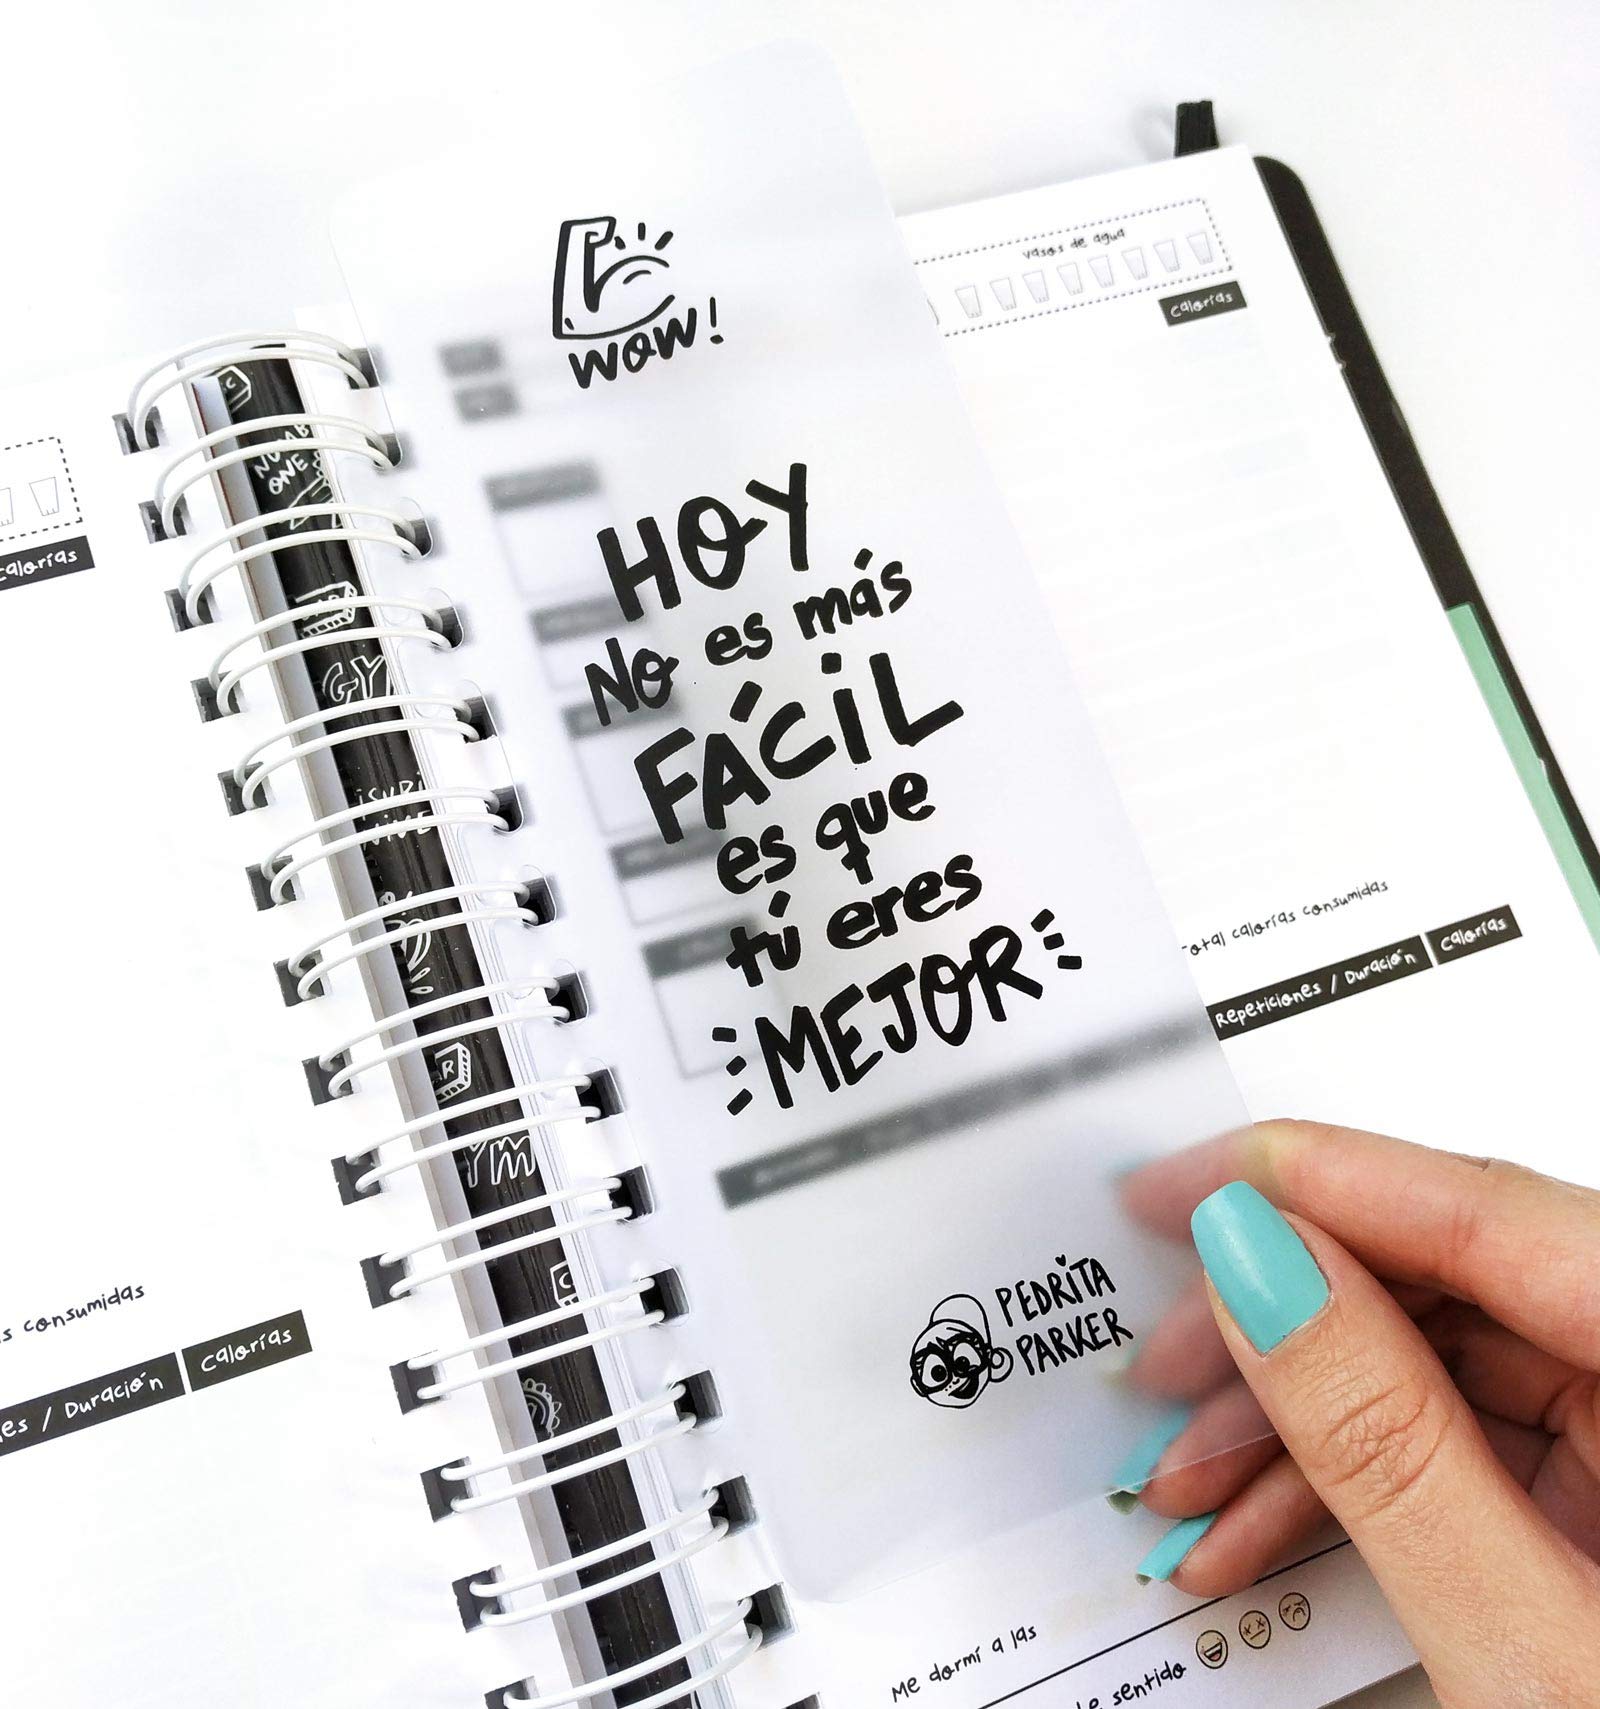 wow!
HOY
NO es más
FÁCIL
es que
tú eres
MEJOR
PEDRITA
PARKER
vasos de agua
Calorías
Total calorías consumidas
Repeticiones / Duración
Calorías
Me dormí a las
sentido
Calorías
consumidas
/ Duración
Calorías
ONE
GY
Ym